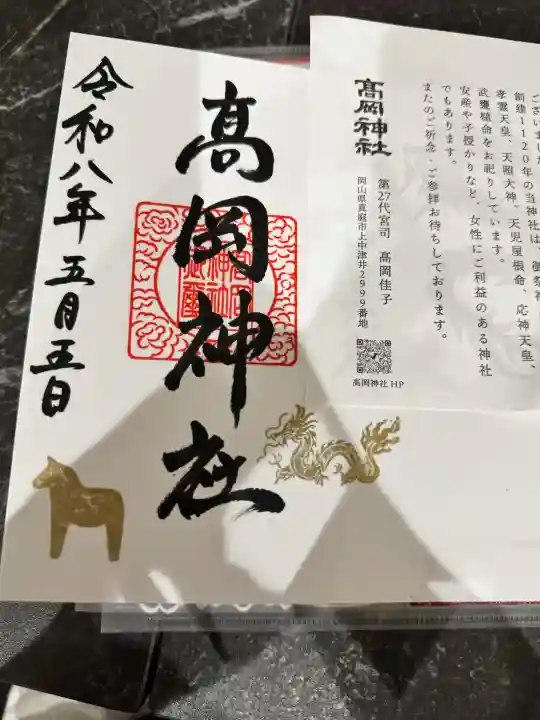 高岡神社
令和八年 五月五日
ございました
創建1120年の当神社は、御祭神
孝霊天皇、天照大神、天児屋根命、応神天皇、
武甕槌命をお祀りしています。
安産や子授かりなど、女性にご利益のある神社
でもあります。
またのご祈念・ご参拝お待ちしております。
髙岡神社
第27代宮司 髙岡佳子
岡山県真庭市上中津井2999番地
髙岡神社 HP